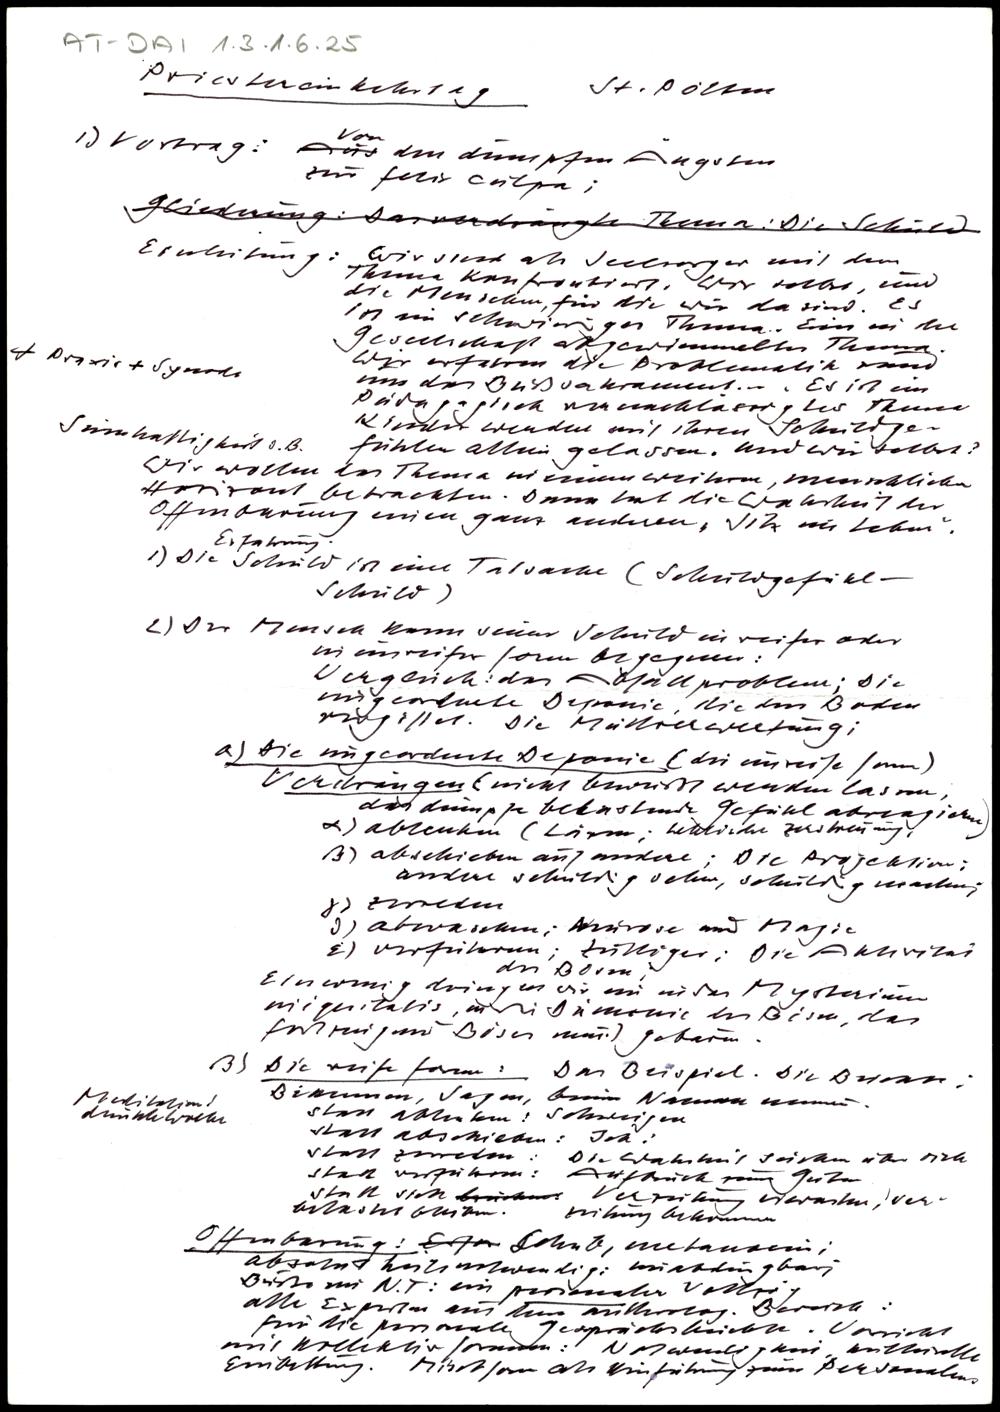 AT-DAI 1.3.1.6.25
Priestereinkehrtag St. Pölten
1) Vortrag: Aus Von den dumpfen Ängsten
zur felix culpa;
Gliederung: Das verdrängte Thema: Die Schuld
Einleitung: Wir sind als Seelsorger mit dem
Thema konfrontiert. Wir selbst, und
die Menschen, für die wir da sind. Es
ist ein schwieriges Thema. Ein in der
Gesellschaft abgewimmeltes Thema.
+ Praxis + Synode
Wir erfahren die Problematik rund
um das Bußsakrament... Es ist ein
Pädagogisch vernachlässigtes Thema
Kinder werden mit ihren Schuldge-
Sünnhaftigkeit z.B.
fühlen allein gelassen. Und wir selbst?
Wir wollen das Thema in einem weiteren, menschlichen
Horizont betrachten. Dann hat die Wahrheit der
Offenbarung einen ganz anderen „Sitz im Leben".
Erfahrung.
1) Die Schuld ist eine Tatsache (Schuldgefühl –
Schuld)
2) Der Mensch kann seiner Schuld in reifer oder
in unreifer Form begegnen:
Vergleich: das Abfallproblem; Die
ungeordnete Deponie, die den Boden
vergiftet. Die Müllverwertung;
a) Die ungeordnete Deponie (die unreife Form)
Verdrängen (nicht bewußt werden lassen,
das dumpfe belastende Gefühl abreagieren)
α) ablenken (Lärm; Zerstreuung;
β) abschieben auf andere; Die Projektion;
andere schuldig sehen, schuldig machen;
γ) zureden
δ) abwaschen; Neurose und Magie
ε) verführen; Zulliger; Die Aktivität
des Bösen;
Ein wenig dringen wir ein in das Mysterium
iniquitatis, in die Dämonie des Bösen, das
fortzeugend Böses muß gebären.
B) Die reife Form: Das Beispiel. Die Beichte;
Bekennen, Sagen, beim Namen nennen.
Meditation!
dunkle Wolke
statt ablenken: Schweigen
statt abschieben: Ich!
statt zureden: Die Wahrheit suchen über sich
statt verführen: Aufbruch zum Guten
statt sich Verzeihung erwarten, Ver-
belastet bleiben. zeihung bekommen
Offenbarung: Schub, metanoein;
absolut heilsnotwendig; unabdingbar;
Buße im N.T: ein personaler Vollzug
alle Experten aus dem anthropolog. Bereich:
für die personale Gesprächsbeichte. Vorsicht
mit Kollektivformen: Notwendigkeit, kultische
Einbettung. Mischform als Hinführung zum Personalen